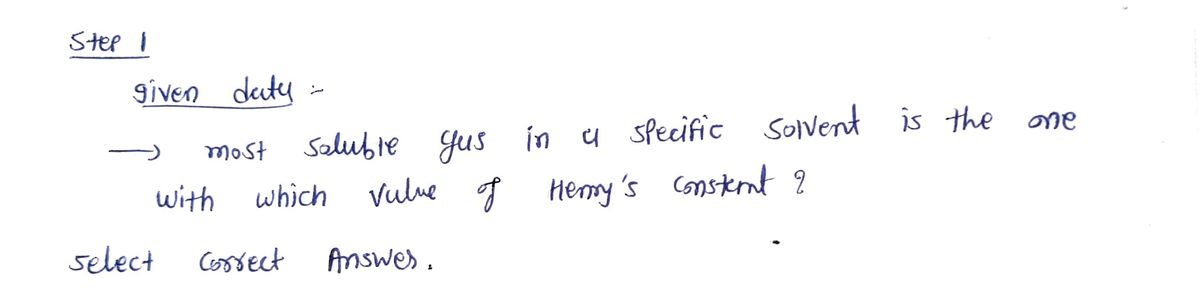 Step 1
given data :-
→ most soluble gas in a specific solvent is the one
with which value of Henry's constant ?
select correct Answer.